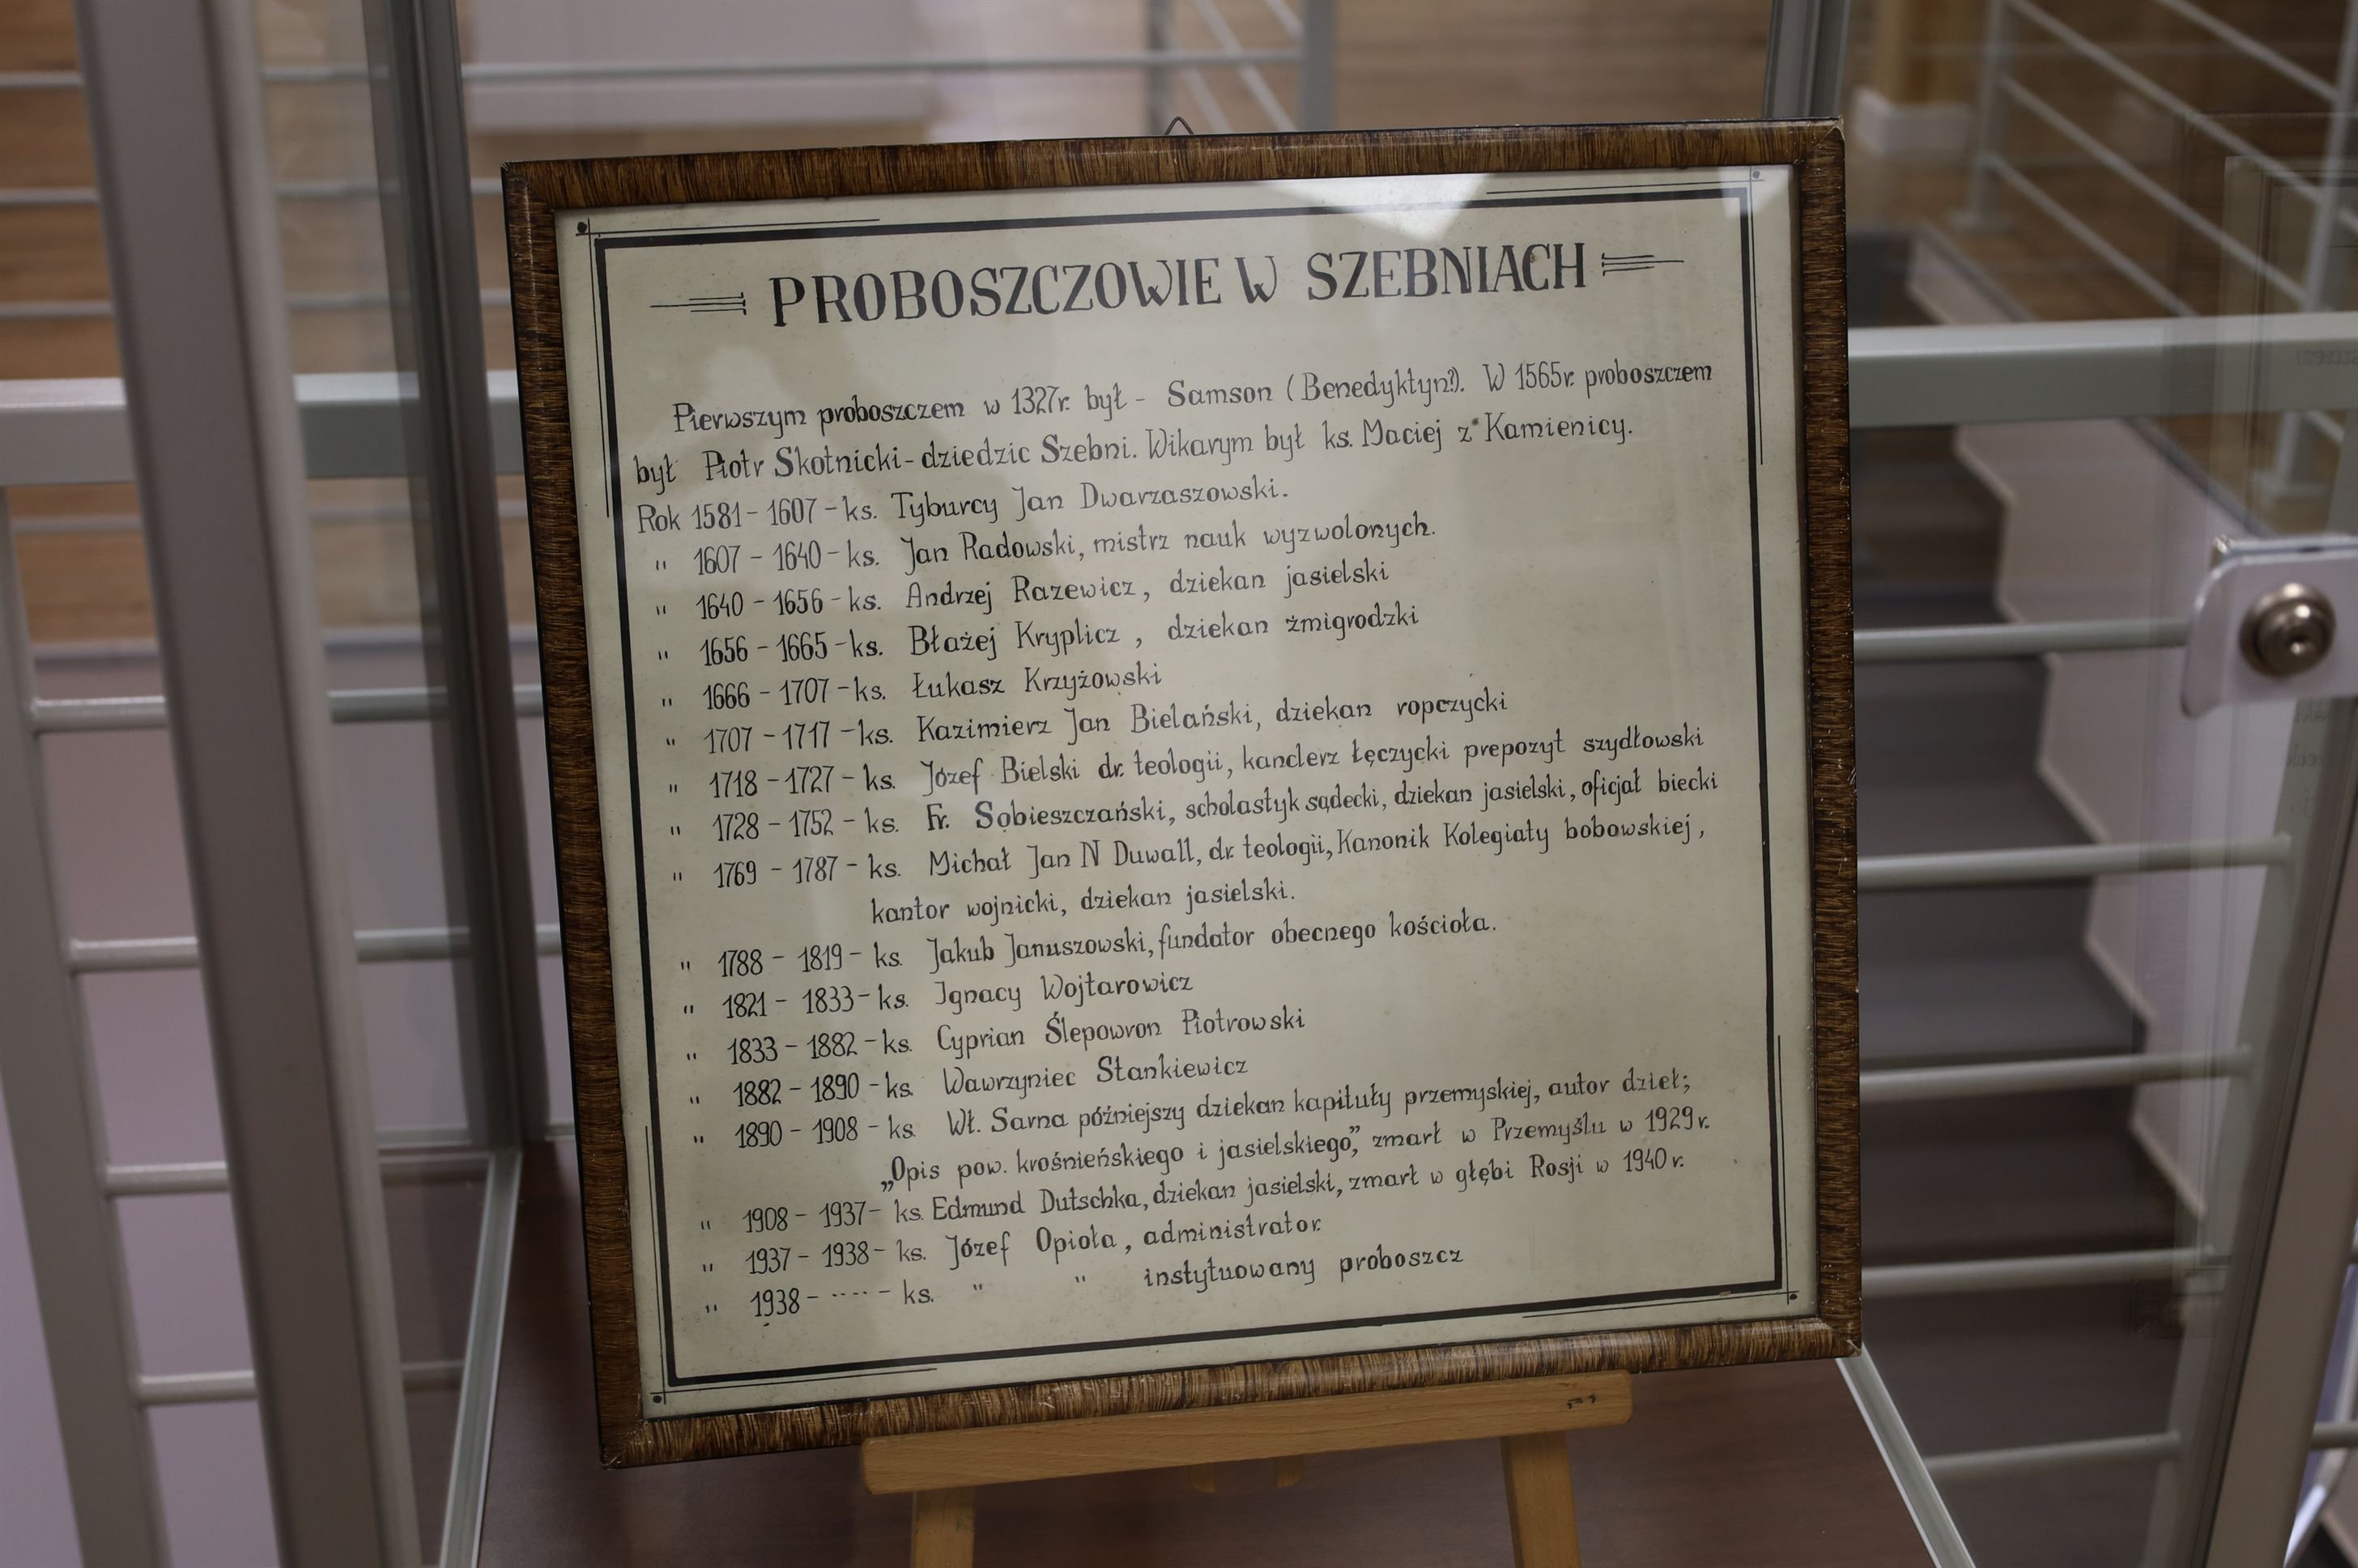 PROBOSZCZOWIE W SZEBNIACH
Pierwszym proboszczem w 1327r. był - Samson (Benedyktyn?). W 1565r. proboszczem
był Piotr Skotnicki - dziedzic Szebni. Wikarym był ks. Maciej z Kamienicy.
Rok 1581 - 1607 - ks. Tyburcy Jan Dwarzaszowski.
" 1607 - 1640 - ks. Jan Radowski, mistrz nauk wyzwolonych.
" 1640 - 1656 - ks. Andrzej Razewicz, dziekan jasielski
" 1656 - 1665 - ks. Błażej Kryplicz, dziekan żmigrodzki
" 1666 - 1707 - ks. Łukasz Krzyżowski
" 1707 - 1717 - ks. Kazimierz Jan Bielański, dziekan ropczycki
" 1718 - 1727 - ks. Józef Bielski dr. teologii, kanclerz łęczycki prepozyt szydłowski
" 1728 - 1752 - ks. Fr. Sobieszczański, scholastyk sądecki, dziekan jasielski, oficjał biecki
" 1769 - 1787 - ks. Michał Jan N Duwall, dr. teologii, Kanonik Kolegiaty bobowskiej,
kantor wojnicki, dziekan jasielski.
" 1788 - 1819 - ks. Jakub Januszowski, fundator obecnego kościoła.
" 1821 - 1833 - ks. Ignacy Wojtarowicz
" 1833 - 1882 - ks. Cyprian Ślepowron Piotrowski
" 1882 - 1890 - ks. Wawrzyniec Stankiewicz
" 1890 - 1908 - ks. Wł. Sarna późniejszy dziekan kapituły przemyskiej, autor dzieł;
„Opis pow. krośnieńskiego i jasielskiego”, zmarł w Przemyślu w 1929 r.
" 1908 - 1937 - ks. Edmund Dutschka, dziekan jasielski, zmarł w głębi Rosji w 1940 r.
" 1937 - 1938 - ks. Józef Opioła, administrator.
" 1938 - ..... - ks. " " instytuowany proboszcz